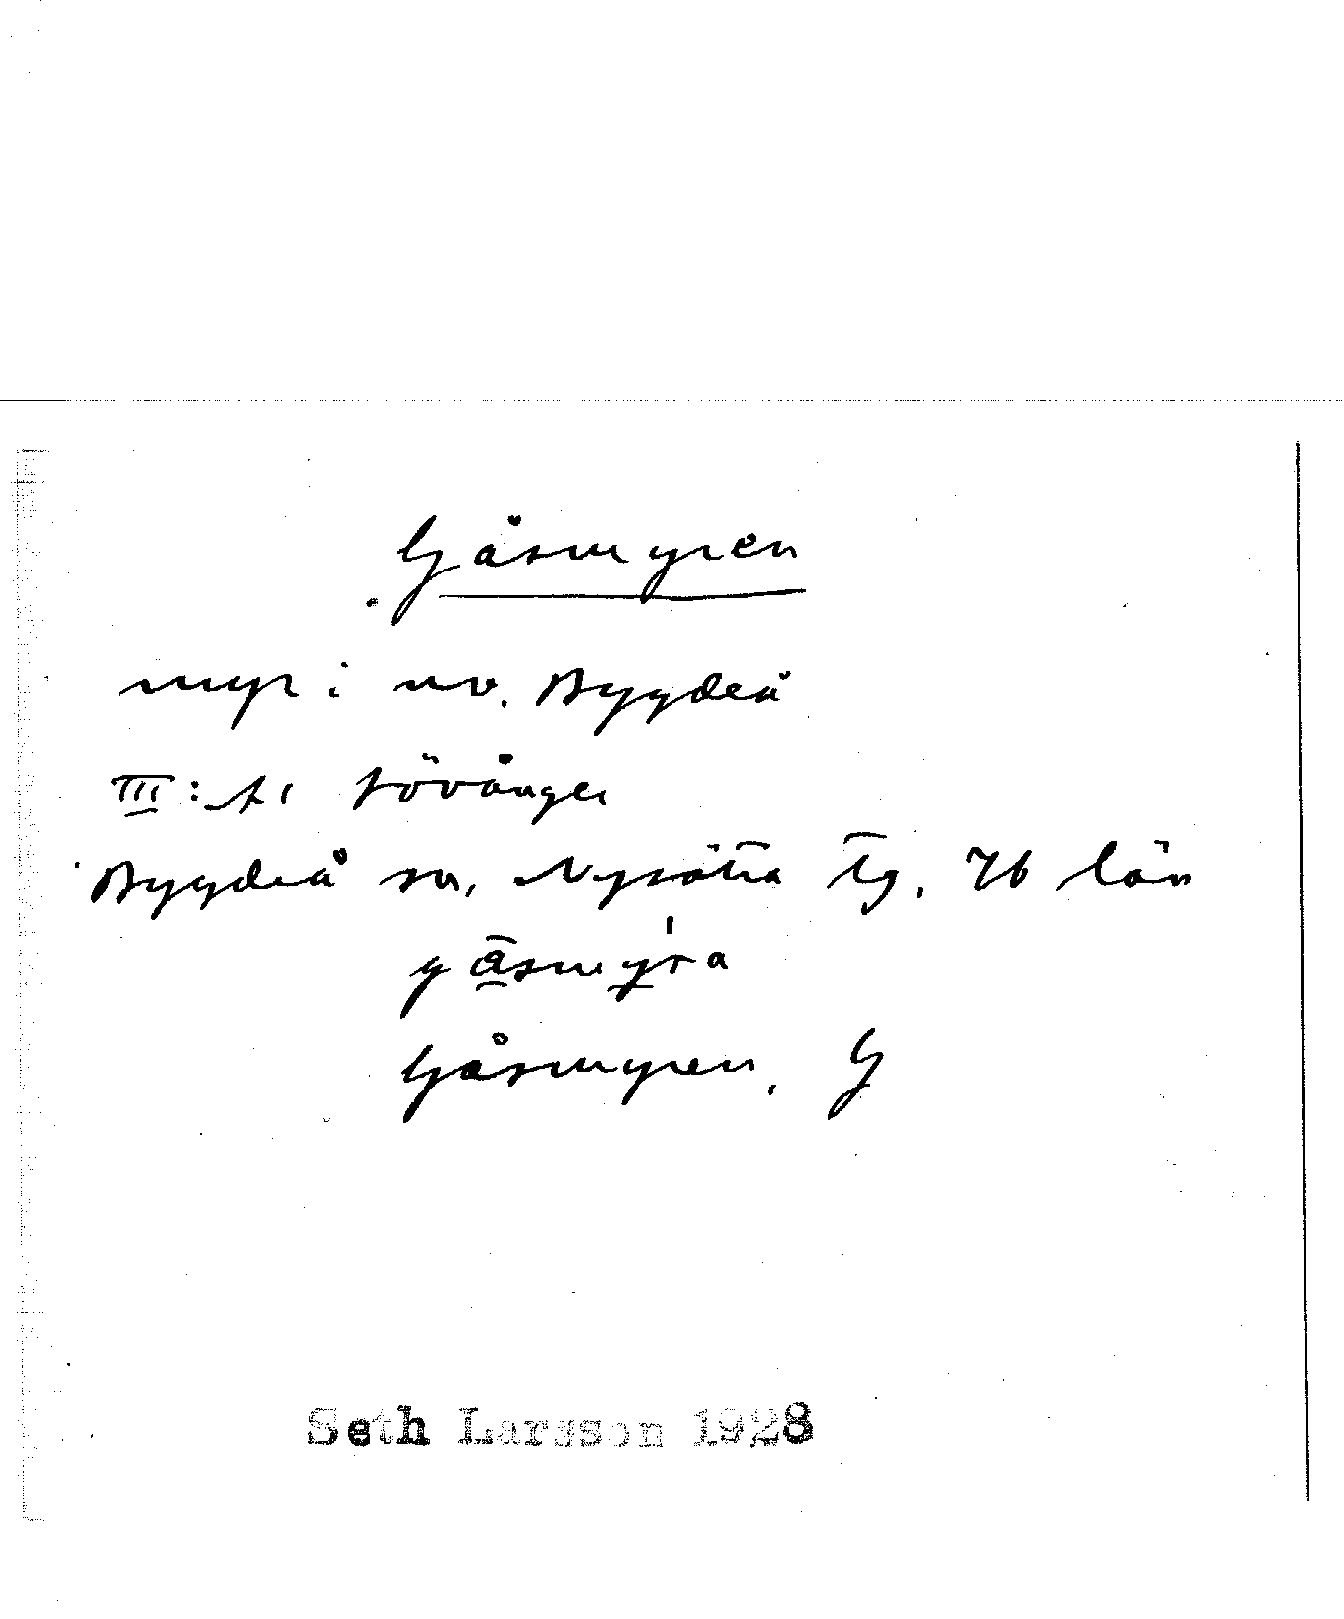 Gåsmyren
myr i nv. Bygdeå
III: A1 Lövånger
Bygdeå sn, Nysätra tg. Vb län
gåsmyra
Gåsmyren. G
Seth Larsson 1928